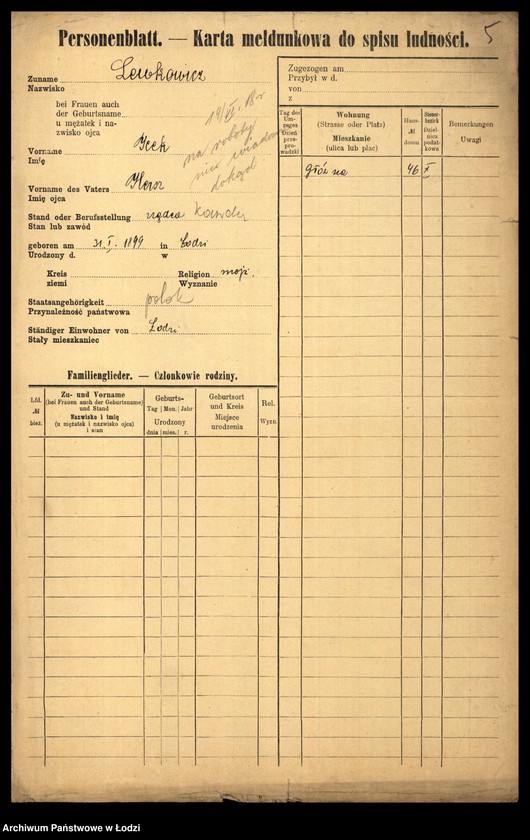 5
Personenblatt. — Karta meldunkowa do spisu ludności.
Zuname
Nazwisko
Lewkowicz
bei Frauen auch
der Geburtsname
u mężatek i na-
zwisko ojca
19/VI. 18 r
na roboty
nie wiadomo
dokąd
Vorname Icek
Imię
Vorname des Vaters
Imię ojca
Stand oder Berufsstellung
Stan lub zawód
geboren am 31. I. 1899 in Łodzi
Urodzony d. w
Kreis
ziemi
Religion mojż.
Wyznanie
Staatsangehörigkeit polak
Przynależność państwowa
Ständiger Einwohner von Łodzi
Stały mieszkaniec
Familienglieder. — Członkowie rodziny.
Lfd. № bież.
Zu- und Vorname
(bei Frauen auch der Geburtsname)
und Stand
Nazwisko i imię
(u mężatek i nazwisko ojca)
i stan
Geburts-
Tag Mon. Jahr
Urodzony
dnia mies. r.
Geburtsort
und Kreis
Miejsce
urodzenia
Rel.
Wyzn.
Zugezogen am
Przybył w d.
von
z
Tag des
Um-
zuges
Dzień
prze-
pro-
wadzki
Wohnung
(Strasse oder Platz)
Mieszkanie
(ulica lub plac)
Haus-
№
domu
Steuer-
bezirk
Dziel-
nica
podat-
kowa
Bemerkungen
Uwagi
Główna 46 X
Archiwum Państwowe w Łodzi